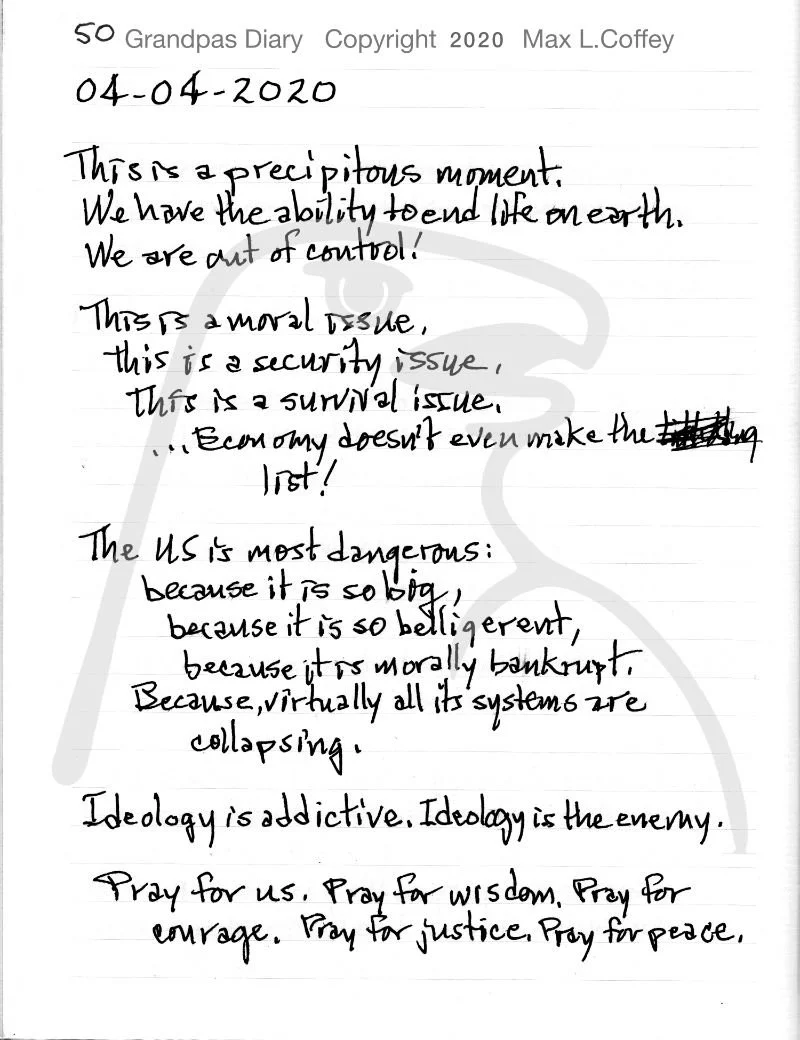 50 Grandpas Diary Copyright 2020 Max L.Coffey
04-04-2020
This is a precipitous moment.
We have the ability to end life on earth.
We are out of control!
This is a moral issue,
this is a security issue,
This is a survival issue.
...Economy doesn't even make the
list!
The US is most dangerous:
because it is so big,
because it is so belligerent,
because it is morally bankrupt.
Because, virtually all its systems are
collapsing.
Ideology is addictive. Ideology is the enemy.
Pray for us. Pray for wisdom. Pray for
courage. Pray for justice. Pray for peace.